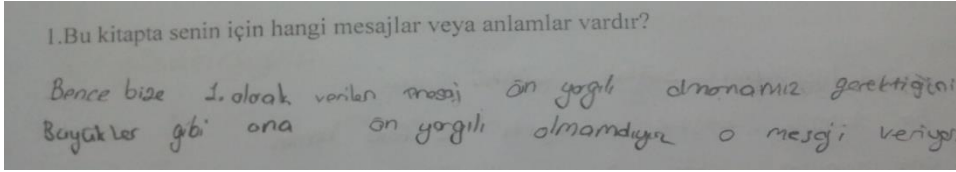 1.Bu kitapta senin için hangi mesajlar veya anlamlar vardır?
Bence bize 1. olarak verilen mesaj ön yargılı olmamamız gerektiğini
Büyükler gibi ona ön yargılı olmamalıyız o mesajı veriyor